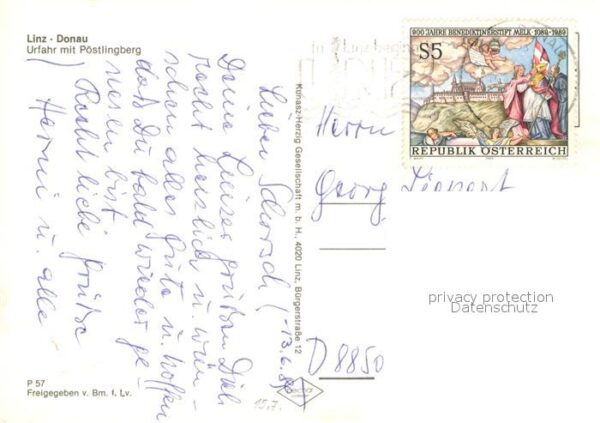 Linz · Donau
Urfahr mit Pöstlingberg
Lieber Schorsch!
13.6.89
Deine Linzer grüßen Dich
recht herzlich u. wün-
schen alles Gute u. hoffen
daß Du bald wieder ge-
nesen bist.
Recht liebe Grüße
Hermi u. alle
P 57
Freigegeben v. Bm. f. Lv.
Kunasz-Herzig Gesellschaft m. b. H., 4020 Linz, Bürgerstraße 12
15.7.
900 JAHRE BENEDIKTINERSTIFT MELK 1089-1989
S5
REPUBLIK ÖSTERREICH
Herrn
Georg
D 8850
privacy protection
Datenschutz